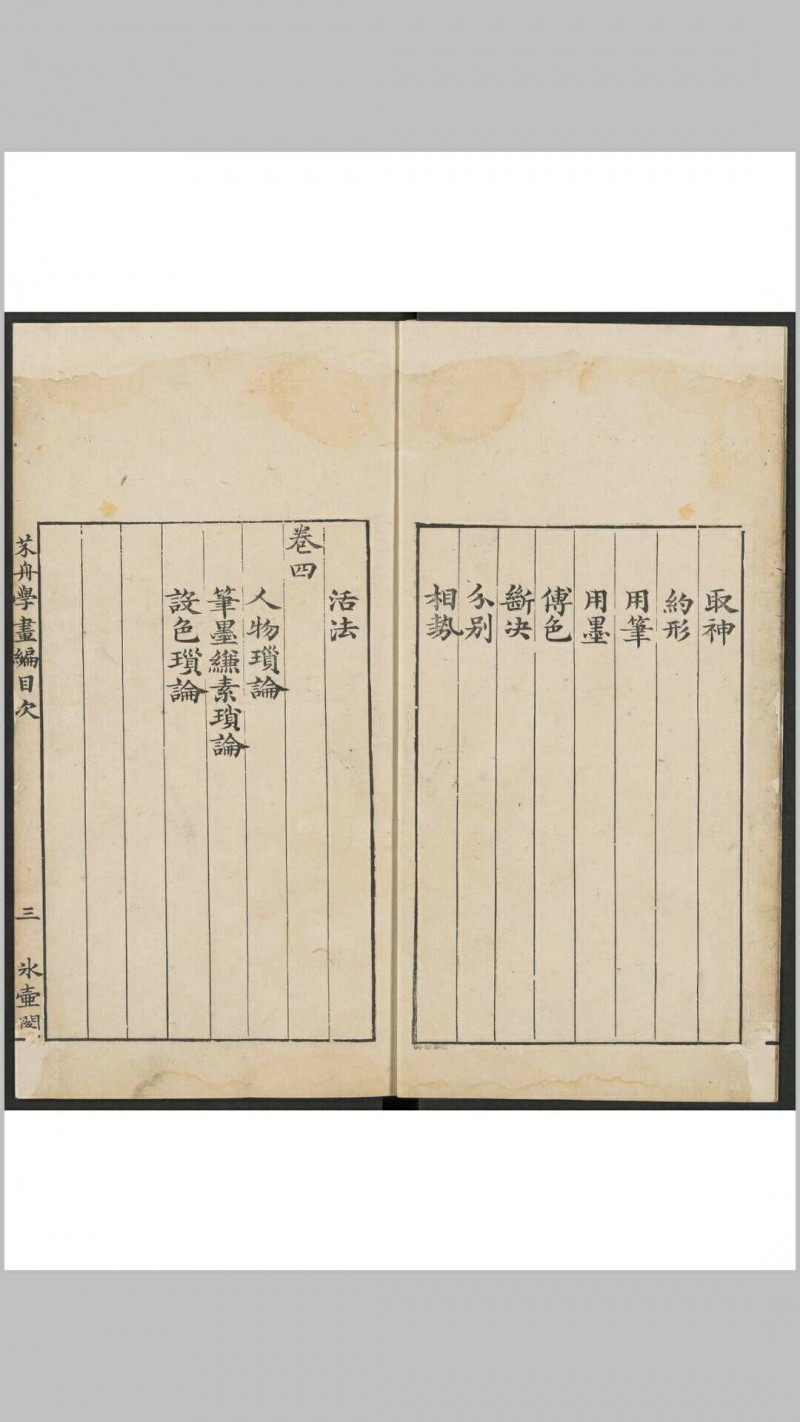 取神
約形
用筆
用墨
傅色
斷决
分别
相勢
活法
卷四
人物瑣論
筆墨縑素瑣論
設色瑣論
芥舟學畫編目次
三
氷壺閣